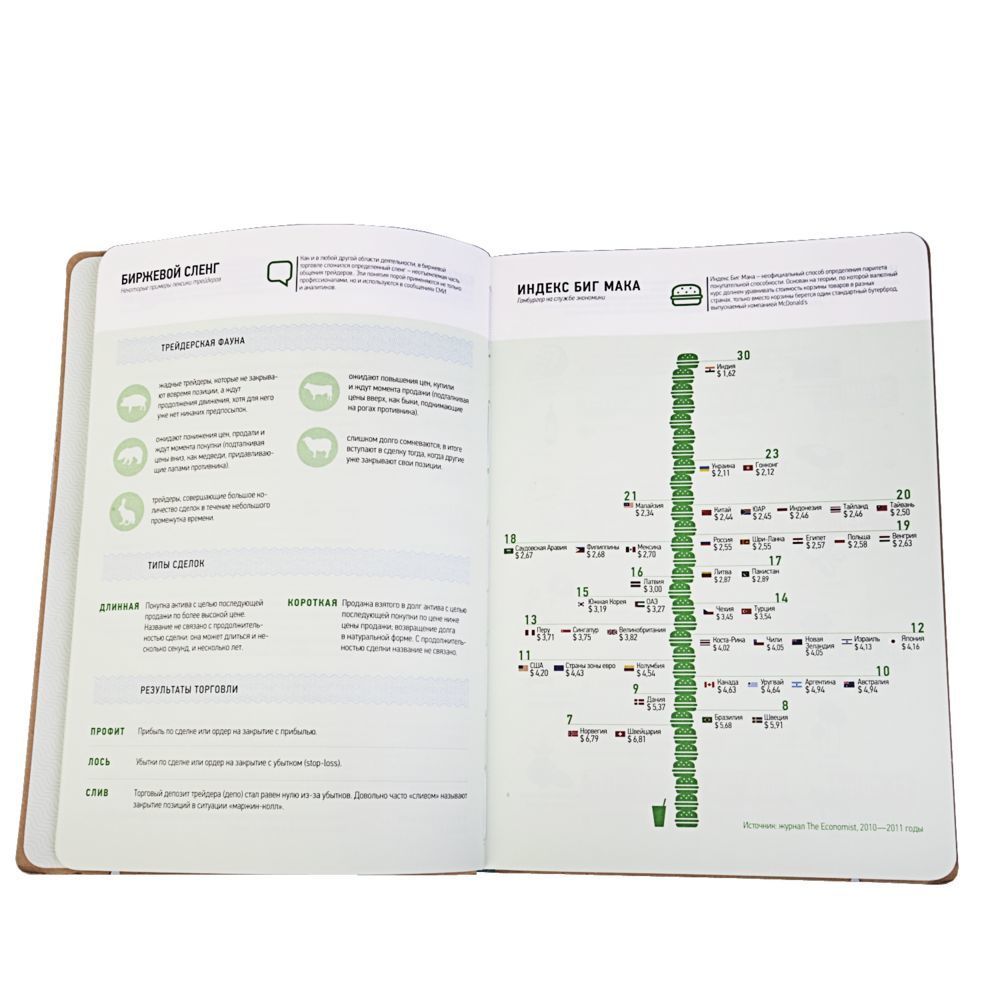 БИРЖЕВОЙ СЛЕНГ
Некоторые примеры лексики трейдеров
Как и в любой другой области деятельности, в биржевой
торговле сложился определенный сленг – неотъемлемая часть
общения трейдеров. Эти понятия порой применяются не только
профессионалами, но и используются в сообщениях СМИ
и аналитиков.
ТРЕЙДЕРСКАЯ ФАУНА
жадные трейдеры, которые не закрыва-
ют вовремя позиции, а ждут
продолжения движения, хотя для него
уже нет никаких предпосылок.
ожидают повышения цен, купили
и ждут момента продажи (подталкивая
цены вверх, как быки, поднимающие
на рогах противника).
ожидают понижения цен, продали и
ждут момента покупки (подталкивая
цены вниз, как медведи, придавливаю-
щие лапами противника).
слишком долго сомневаются, в итоге
вступают в сделку тогда, когда другие
уже закрывают свои позиции.
трейдеры, совершающие большое ко-
личество сделок в течение небольшого
промежутка времени.
ТИПЫ СДЕЛОК
ДЛИННАЯ Покупка актива с целью последующей
продажи по более высокой цене.
Название не связано с продолжитель-
ностью сделки: она может длиться и не-
сколько секунд, и несколько лет.
КОРОТКАЯ Продажа взятого в долг актива с целью
последующей покупки по цене ниже
цены продажи, возвращение долга
в натуральной форме. С продолжитель-
ностью сделки название не связано.
РЕЗУЛЬТАТЫ ТОРГОВЛИ
ПРОФИТ Прибыль по сделке или ордер на закрытие с прибылью.
ЛОСЬ Убытки по сделке или ордер на закрытие с убытком (stop-loss).
СЛИВ Торговый депозит трейдера (депо) стал равен нулю из-за убытков. Довольно часто «сливом» называют
закрытие позиций в ситуации «маржин-колл».
ИНДЕКС БИГ МАКА
Гамбургер на службе экономики
Индекс Биг Мака – неофициальный способ определения паритета
покупательной способности. Основан на теории, по которой валютный
курс должен уравнивать стоимость корзины товаров в разных
странах, только вместо корзины берется один стандартный бутерброд,
выпускаемый компанией McDonald's.
30
Индия
$ 1,62
23
Украина Гонконг
$ 2,11 $ 2,12
21
Малайзия
$ 2,34
20
Китай ЮАР Индонезия Тайланд Тайвань
$ 2,44 $ 2,45 $ 2,46 $ 2,46 $ 2,50
19
Россия Шри-Ланка Египет Польша Венгрия
$ 2,55 $ 2,55 $ 2,57 $ 2,58 $ 2,63
18
Саудовская Аравия Филиппины Мексика
$ 2,67 $ 2,68 $ 2,70
17
Литва Пакистан
$ 2,87 $ 2,89
16
Латвия
$ 3,00
15
Южная Корея ОАЭ
$ 3,19 $ 3,27
14
Чехия Турция
$ 3,45 $ 3,54
13
Перу Сингапур Великобритания
$ 3,71 $ 3,75 $ 3,82
12
Коста-Рика Чили Новая Зеландия Израиль Япония
$ 4,02 $ 4,05 $ 4,05 $ 4,13 $ 4,16
11
США Страны зоны евро Колумбия
$ 4,20 $ 4,43 $ 4,54
10
Канада Уругвай Аргентина Австралия
$ 4,63 $ 4,64 $ 4,94 $ 4,94
9
Дания
$ 5,37
8
Бразилия Швеция
$ 5,68 $ 5,91
7
Норвегия Швейцария
$ 6,79 $ 6,81
Источник: журнал The Economist, 2010—2011 годы